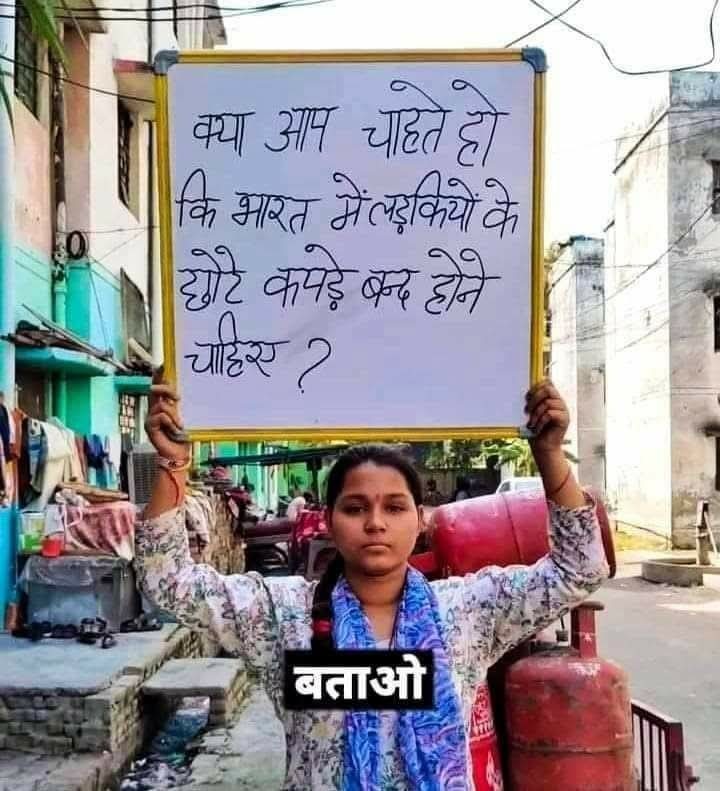 क्या आप चाहते हो
कि भारत में लड़कियों के
छोटे कपड़े बन्द होने
चाहिए ?
बताओ